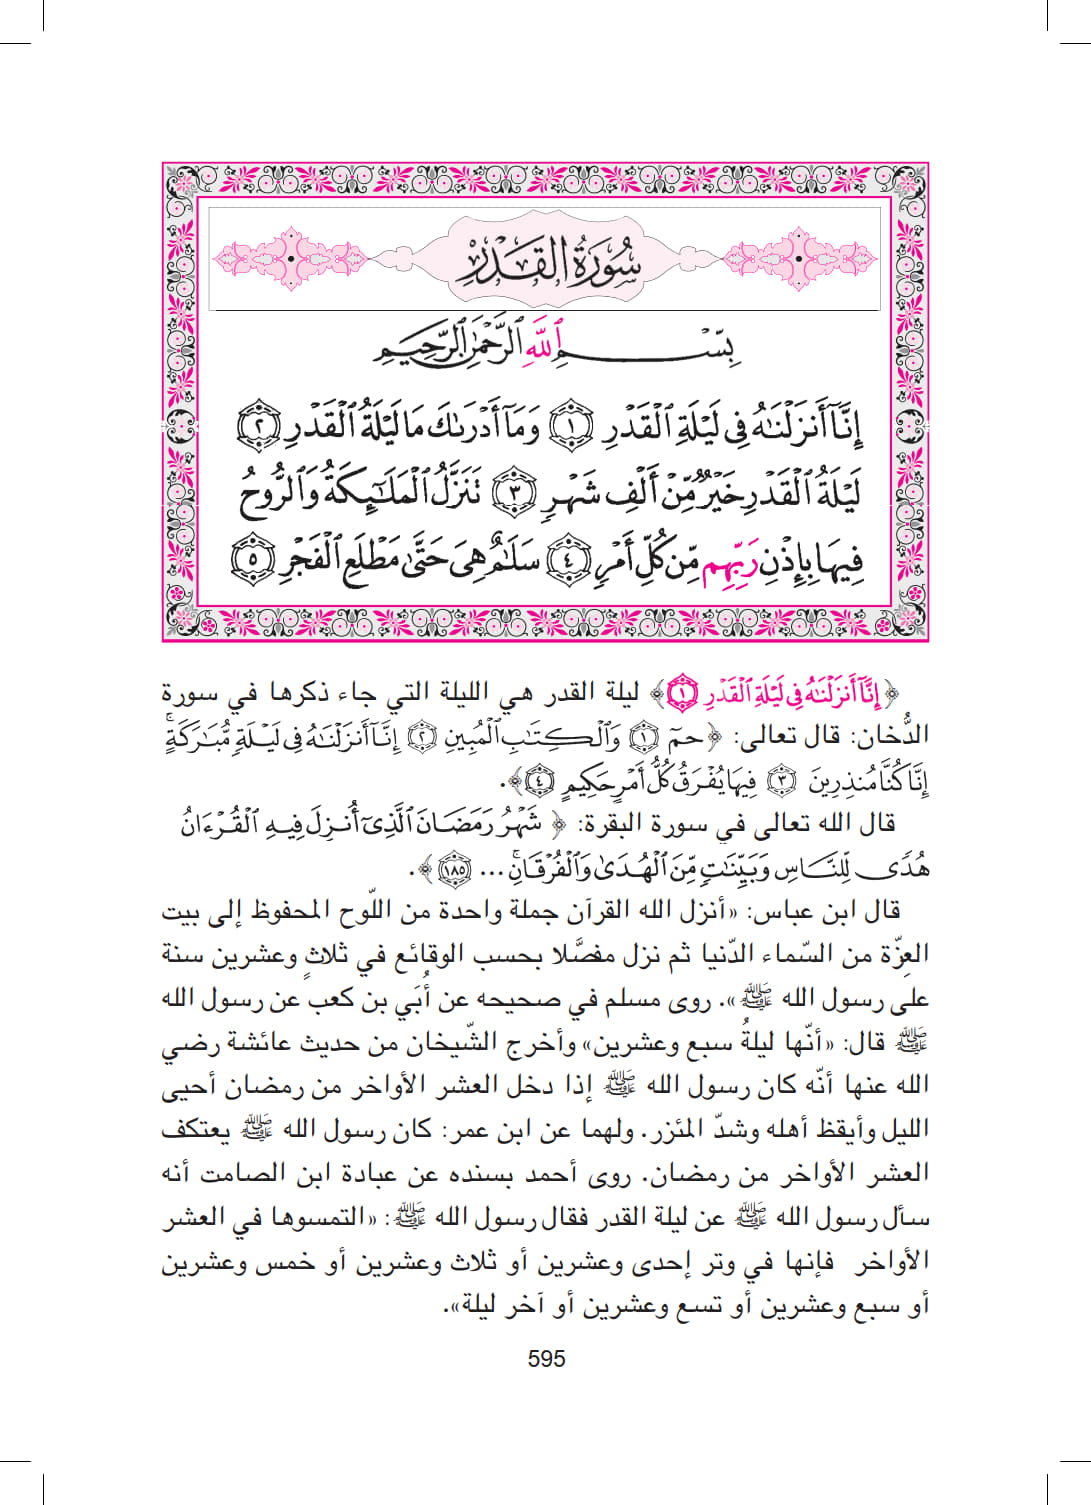 سُورَةُ القَدْرِ
بِسْمِ ٱللَّهِ ٱلرَّحْمَٰنِ ٱلرَّحِيمِ
إِنَّآ أَنزَلْنَٰهُ فِى لَيْلَةِ ٱلْقَدْرِ ١ وَمَآ أَدْرَىٰكَ مَا لَيْلَةُ ٱلْقَدْرِ ٢
لَيْلَةُ ٱلْقَدْرِ خَيْرٌ مِّنْ أَلْفِ شَهْرٍ ٣ تَنَزَّلُ ٱلْمَلَٰٓئِكَةُ وَٱلرُّوحُ
فِيهَا بِإِذْنِ رَبِّهِم مِّن كُلِّ أَمْرٍ ٤ سَلَٰمٌ هِىَ حَتَّىٰ مَطْلَعِ ٱلْفَجْرِ ٥
﴿إِنَّآ أَنزَلْنَٰهُ فِى لَيْلَةِ ٱلْقَدْرِ ١﴾ ليلة القدر هي الليلة التي جاء ذكرها في سورة
الدُّخان: قال تعالى: ﴿حمٓ ١ وَٱلْكِتَٰبِ ٱلْمُبِينِ ٢ إِنَّآ أَنزَلْنَٰهُ فِى لَيْلَةٍ مُّبَٰرَكَةٍۚ
إِنَّا كُنَّا مُنذِرِينَ ٣ فِيهَا يُفْرَقُ كُلُّ أَمْرٍ حَكِيمٍ ٤﴾.
قال الله تعالى في سورة البقرة: ﴿شَهْرُ رَمَضَانَ ٱلَّذِىٓ أُنزِلَ فِيهِ ٱلْقُرْءَانُ
هُدًى لِّلنَّاسِ وَبَيِّنَٰتٍ مِّنَ ٱلْهُدَىٰ وَٱلْفُرْقَانِۚ ... ١٨٥﴾.
قال ابن عباس: «أنزل الله القرآن جملة واحدة من اللّوح المحفوظ إلى بيت
العِزّة من السّماء الدّنيا ثم نزل مفصَّلا بحسب الوقائع في ثلاثٍ وعشرين سنة
على رسول الله ﷺ». روى مسلم في صحيحه عن أُبَي بن كعب عن رسول الله
ﷺ قال: «أنّها ليلةُ سبع وعشرين» وأخرج الشّيخان من حديث عائشة رضي
الله عنها أنّه كان رسول الله ﷺ إذا دخل العشر الأواخر من رمضان أحيى
الليل وأيقظ أهله وشدّ المئزر. ولهما عن ابن عمر: كان رسول الله ﷺ يعتكف
العشر الأواخر من رمضان. روى أحمد بسنده عن عبادة ابن الصامت أنه
سأل رسول الله ﷺ عن ليلة القدر فقال رسول الله ﷺ: «التمسوها في العشر
الأواخر فإنها في وتر إحدى وعشرين أو ثلاث وعشرين أو خمس وعشرين
أو سبع وعشرين أو تسع وعشرين أو آخر ليلة».
595